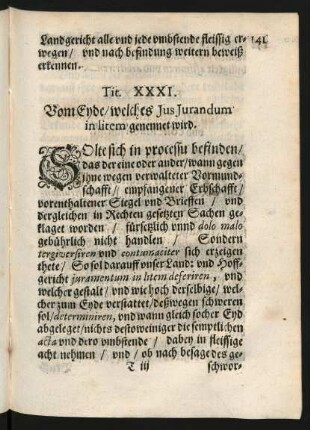 Landgericht alle vnd jede vmbstende fleissig er- 141
wegen/ vnd nach befindung weitern beweiß
erkennen.
Tit. XXXI.
Vom Eyde/ welches Jus Jurandum
in litem genennet wird.
SOlte sich in processu befinden/
das der eine oder ander/ wann gegen
ihne wegen verwalteter Vormund-
schafft/ empfangener Erbschafft/
vorenthaltener Siegel vnd Brieffen / vnd
dergleichen in Rechten gesetzten Sachen ge-
klaget worden / fürsetzlich vnnd dolo malo
gebührlich nicht handlen / Sondern
tergiversiren vnd contumaciter sich erzeigen
thete/ So sol darauff vnser Land: vnd Hoff-
gericht juramentum in litem deferiren, vnd
welcher gestalt/ vnd wie hoch derselbige/ wel-
cher zum Eyde verstattet/ deßwegen schweren
sol/ determiniren, vnd wann gleich socher Eyd
abgeleget/ nichts destoweiniger die semptlichen
acta vnd dero vmbstende / dabey in fleissige
acht nehmen / vnd/ ob nach besage des ge-
T iij schwor-